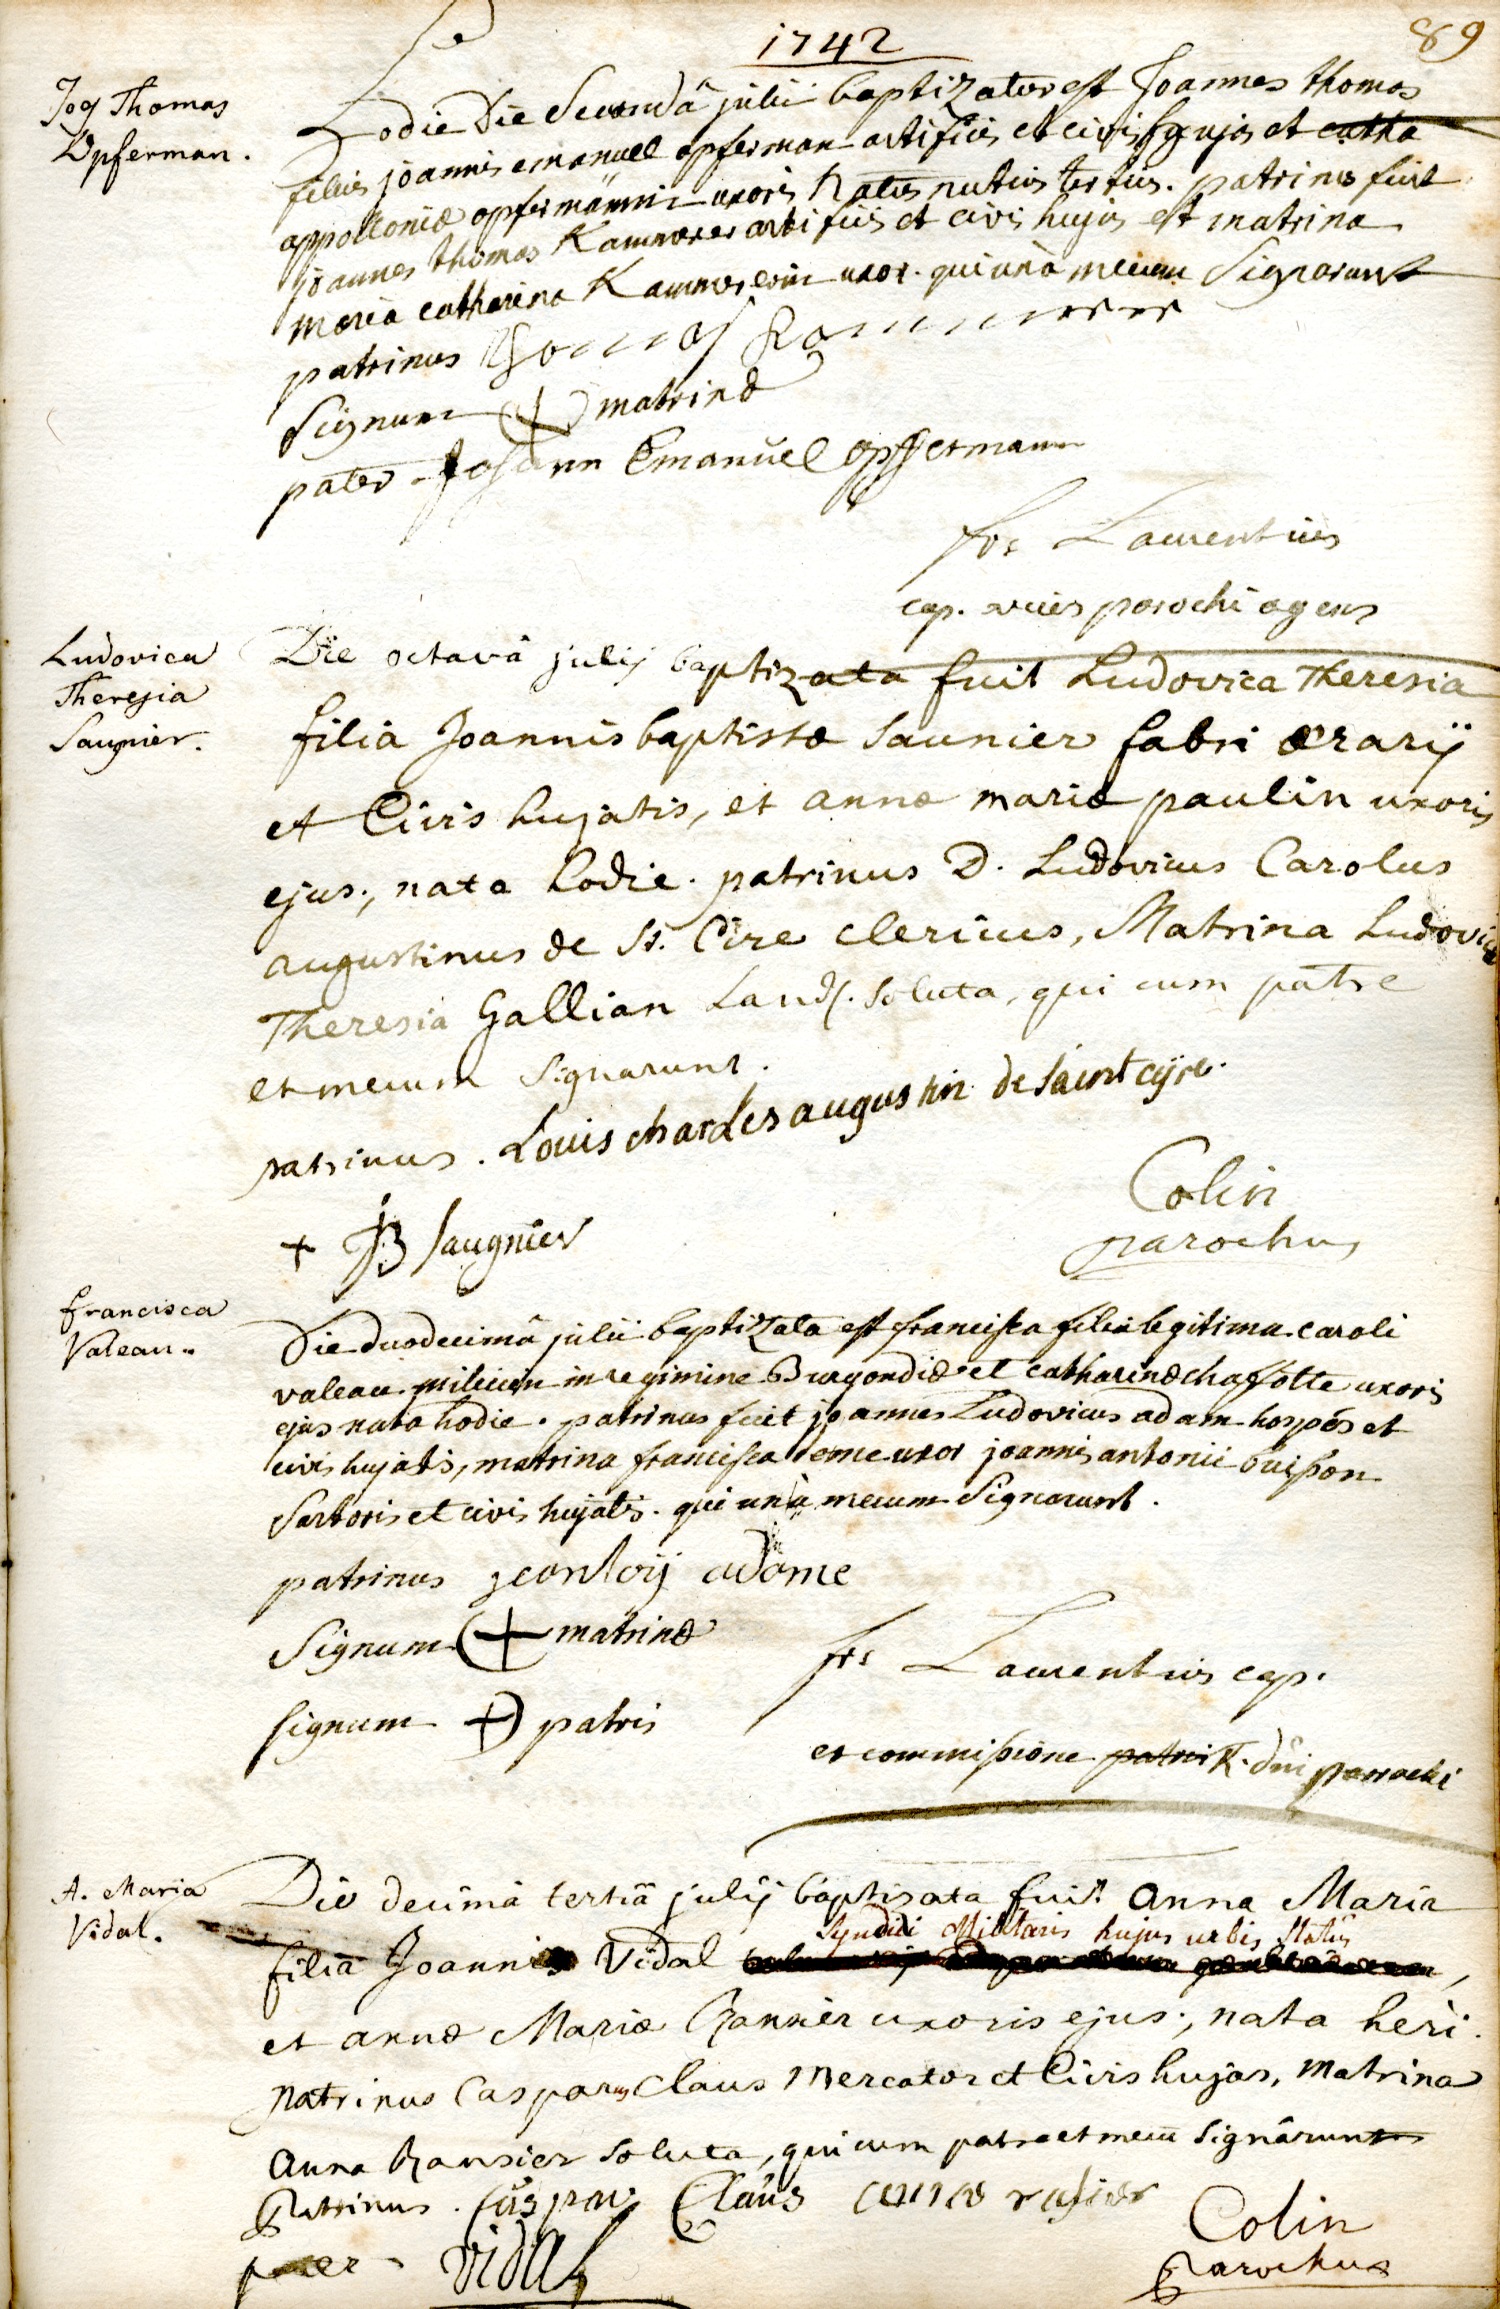 1742
89
Jos Thomas
Opferman.
Hodie Die Secundâ julii baptizatus est Joannes thomas
filius joannis emanuel opferman artificis et civis hujus et catha
appolloniæ opfermännin uxoris natus nutius tertius. patrinus fuit
joannes thomas Kammerer artificis et civis hujus et matrina
maria catharina Kammererin uxor. qui unà mecum Signarunt
patrinus Thomas Kammerer
Signum + matrinæ
pater Johann Emanuel opffermann
frs Laurentius
cap. vices parochi agens
Ludovica
Theresia
Saugnier.
Die octavâ julij baptizata fuit Ludovica Theresia
filia Joannis baptistæ Saunier fabri ærarij
et Civis hujatis, et annæ mariæ paulin uxoris
ejus; nata hodie. patrinus D. Ludovicus Carolus
augustinus de St. Cire clericus, Matrina Ludovica
Theresia Gallian Lauds. soluta, qui cum patre
et mecum signarunt.
patrinus. Louis charles augustin de saint cyre.
+ JB saugnier
Colin
parochus
Francisca
Valeau.
Die duodecimâ julii baptizata est francisca filia legitima caroli
valeau militum in regimine Burgondiæ et catharinæ chaffotte uxoris
ejus nata hodie. patrinus fuit joannes Ludovicus adam hospes et
civis hujatis, matrina francisca uxor joannis antonii
Sartoris et civis hujatis. qui unà mecum Signarunt.
patrinus adome
Signum + matrinæ
signum + patris
frs Laurentius cap.
ex commissione patris R. dni parochi
A. Maria
Vidal.
Die decimâ tertiâ julij baptisata fuit Anna Maria
Syndici Militaris hujus urbis Statûs
filia Joannis Vidal,
et annæ Mariæ Ranxier uxoris ejus; nata heri.
patrinus Casparus Claus Mercator et Civis hujas, Matrina
Anna Ransier soluta, qui cum patre et mecū signârunt
Patrinus. Caspar Claus anna rasier
pater Vidal
Colin
Parochus